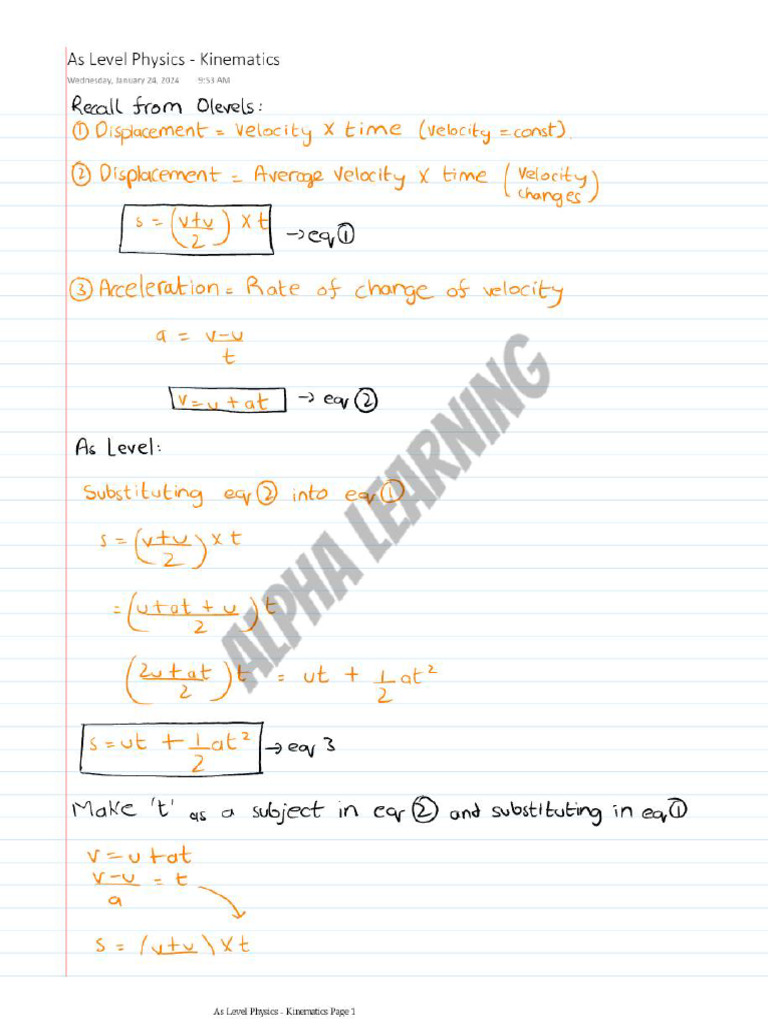 As Level Physics - Kinematics
Wednesday, January 24, 2024 9:53 AM
Recall from Olevels:
① Displacement = Velocity × time (velocity = const).
② Displacement = Average velocity × time (velocity changes)
s = (v+u/2) × t → eq ①
③ Acceleration = Rate of change of velocity
a = v-u/t
v = u + at → eq ②
As Level:
Substituting eq ② into eq ①
s = (v+u/2) × t
= (u+at+u/2) t
(2u+at/2) t = ut + 1/2 at²
s = ut + 1/2 at² → eq 3
Make 't' as a subject in eq ② and substituting in eq ①
v = u + at
v-u/a = t
s = (v+u) × t
ALPHA LEARNING
As Level Physics - Kinematics Page 1